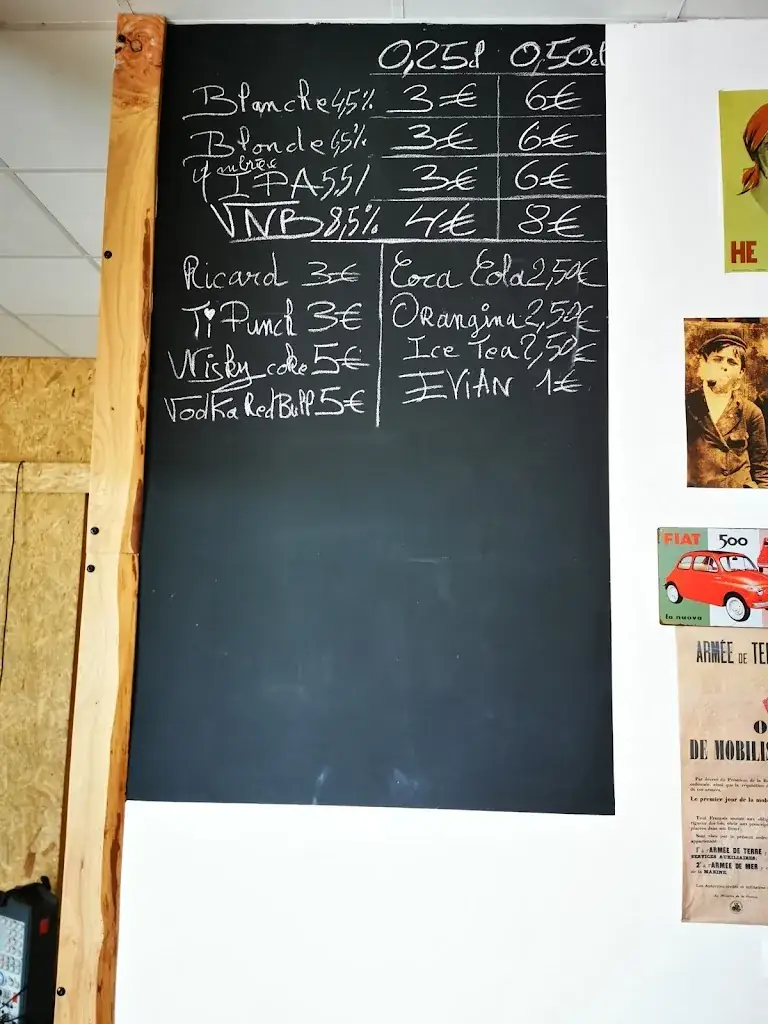 0,25cl 0,50cl
Blanche 4,5% 3€ 6€
Blonde 6,5% 3€ 6€
ambrée
IPA 5,5% 3€ 6€
VNB 8,5% 4€ 8€
Ricard 3€
Ti Punch 3€
Wisky coke 5€
Vodka RedBull 5€
Coca Cola 2,50€
Orangina 2,50€
Ice Tea 2,50€
EVIAN 1€
HE
FIAT 500
la nuova
ARMÉE DE TE
DE MOBILIS
Le premier jour de la mob
1° ARMÉE DE TERRE
SERVICES AUXILIAIRES
2° ARMÉE DE MER
MARINE